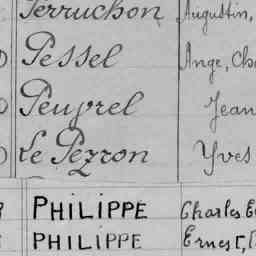 Perruchon Augustin,
Pessel Ange, Cha
Peuprel Jean
Le Pezron Yves
PHILIPPE Charles E
PHILIPPE Ernest,